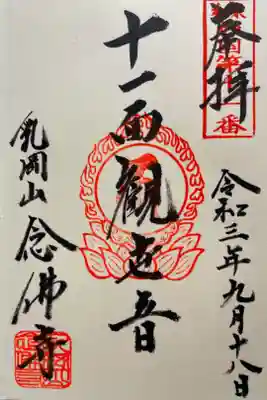 奉拝
令和三年九月十八日
十一面観世音
乳岡山
念佛寺